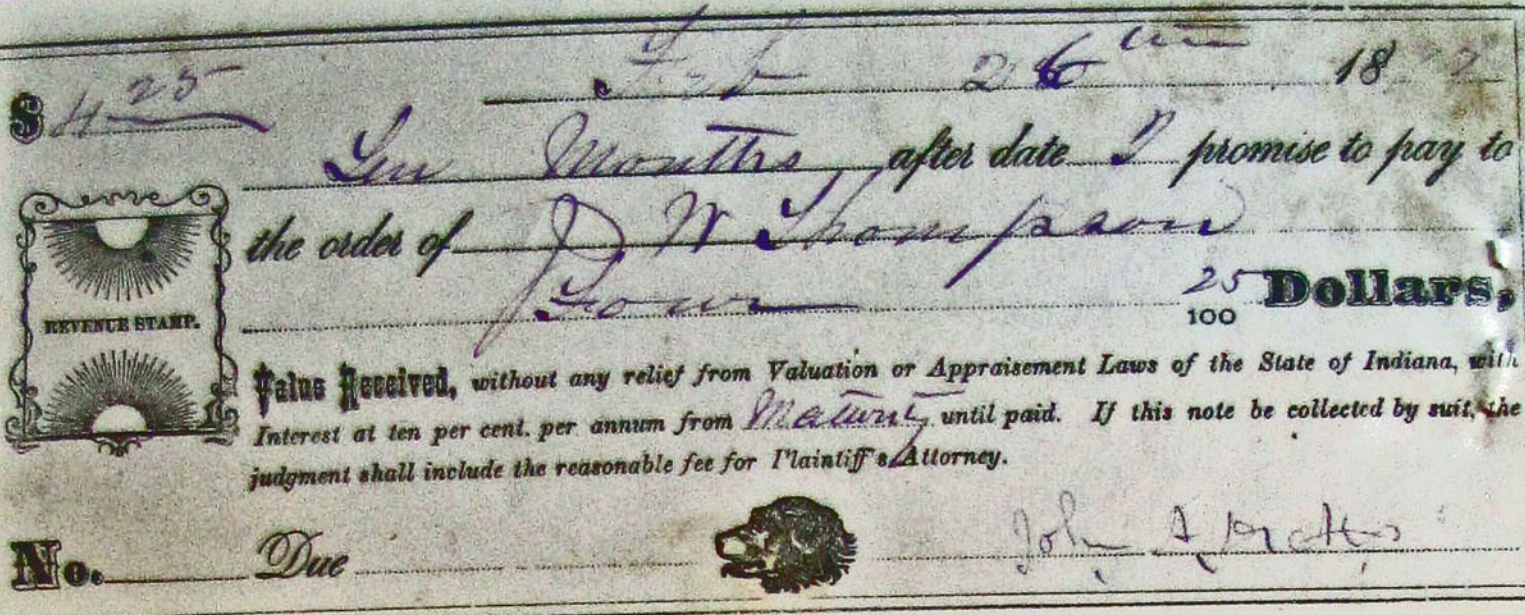 $ 4 25 Feb 26 18
Ten Months after date I promise to pay to
the order of J W Thompson
Four 25/100 Dollars,
REVENUE STAMP.
Value Received, without any relief from Valuation or Appraisement Laws of the State of Indiana, with
Interest at ten per cent. per annum from Maturity until paid. If this note be collected by suit, the
judgment shall include the reasonable fee for Plaintiff's Attorney.
No. Due John A